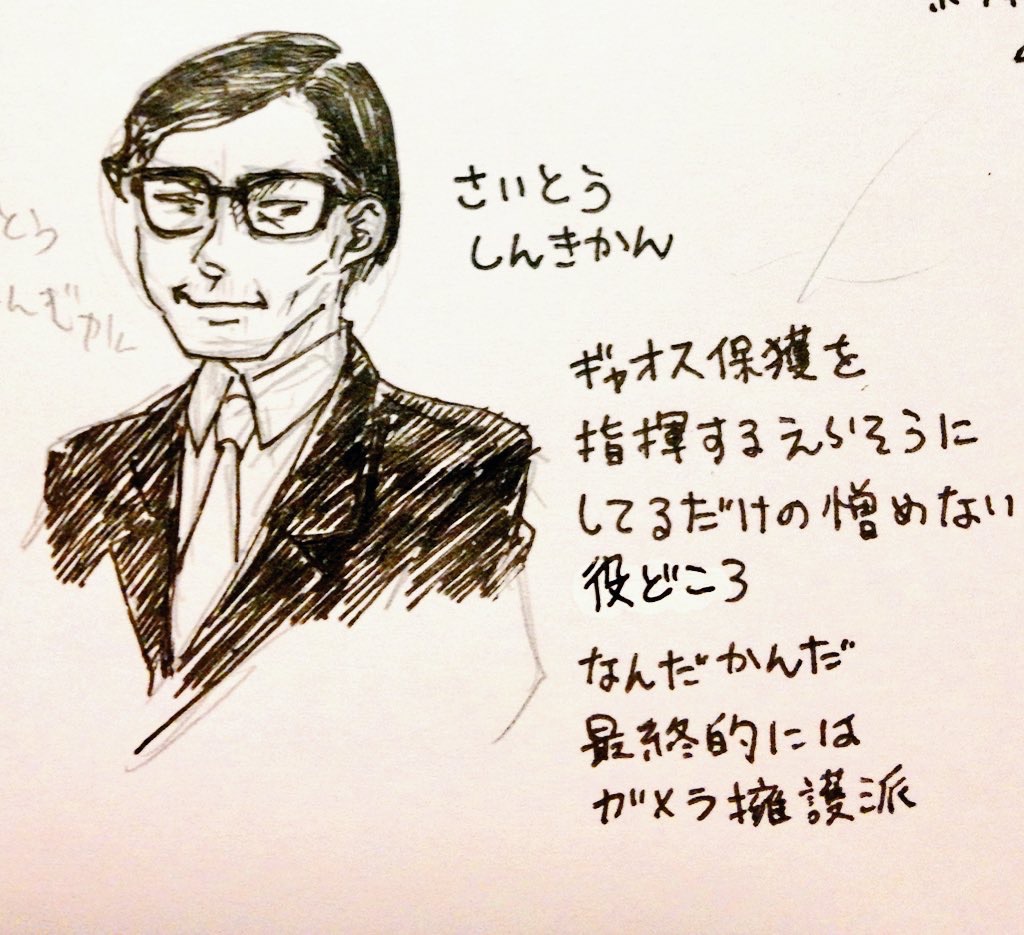 さいとう
しんきかん
ギャオス保獲を
指揮するえらそうに
してるだけの憎めない
役どころ
なんだかんだ
最終的には
ガメラ擁護派